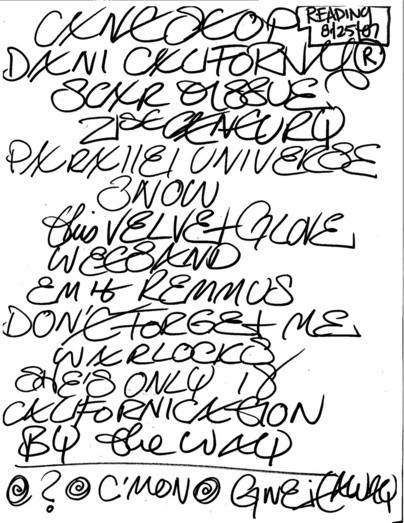 CAN'T STOP
READING
8/25/07
DANI CALIFORNIA ®
SCAR TISSUE
21st CENTURY
PARALLEL UNIVERSE
SNOW
this VELVEt GLOVE
WET SAND
EMIt REMMUS
DON'T FORGEt ME
WARLOCKS
SHE'S ONLY 18
CALIFORNICATION
BY the WAY
? C'MON GIVE it AWAY